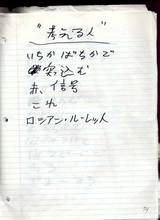 "考える人"
いちかばちかで
突込む
赤信号
これ
ロシアン・ルーレット